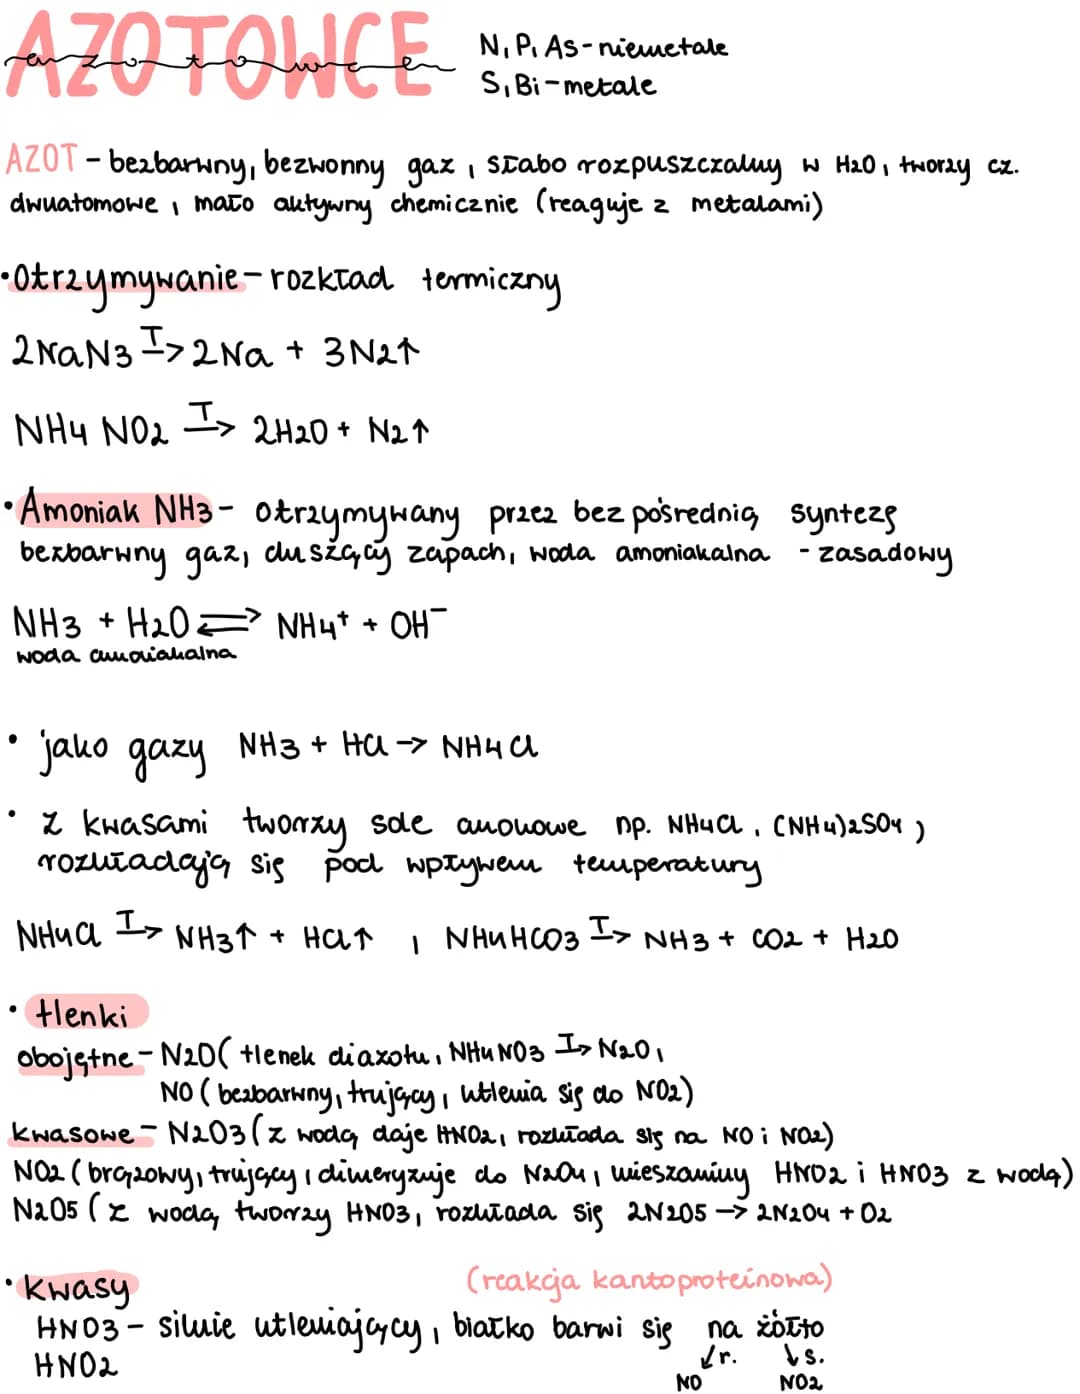 AZOTOWCE
azotowce
N, P, As - niemetale
S, Bi - metale
AZOT - bezbarwny, bezwonny gaz, słabo rozpuszczalny w H2O, tworzy cz.
dwuatomowe, mało aktywny chemicznie (reaguje z metalami)
• Otrzymywanie - rozkład termiczny
2NaN3 T-> 2Na + 3N2↑
NH4NO2 T-> 2H2O + N2↑
• Amoniak NH3 - otrzymywany przez bezpośrednią syntezę
bezbarwny gaz, duszący zapach, woda amoniakalna - zasadowy
NH3 + H2O ⇌ NH4⁺ + OH⁻
woda amoniakalna
• jako gazy NH3 + HCl -> NH4Cl
• z kwasami tworzy sole amonowe np. NH4Cl, (NH4)2SO4,
rozkładają się pod wpływem temperatury
NH4Cl T-> NH3↑ + HCl↑ , NH4HCO3 T-> NH3 + CO2 + H2O
• tlenki
obojętne - N2O (tlenek diazotu, NH4NO3 T-> N2O,
NO (bezbarwny, trujący, utlenia się do NO2)
kwasowe - N2O3 (z wodą daje HNO2, rozkłada się na NO i NO2)
NO2 (brązowy, trujący, dimeryzuje do N2O4, mieszaniny HNO2 i HNO3 z wodą)
N2O5 (z wodą tworzy HNO3, rozkłada się 2N2O5 -> 2N2O4 + O2
• kwasy (reakcja kantoproteinowa)
HNO3 - silnie utleniający, białko barwi się na żółto
HNO2 ↙r. ↓s.
NO NO2